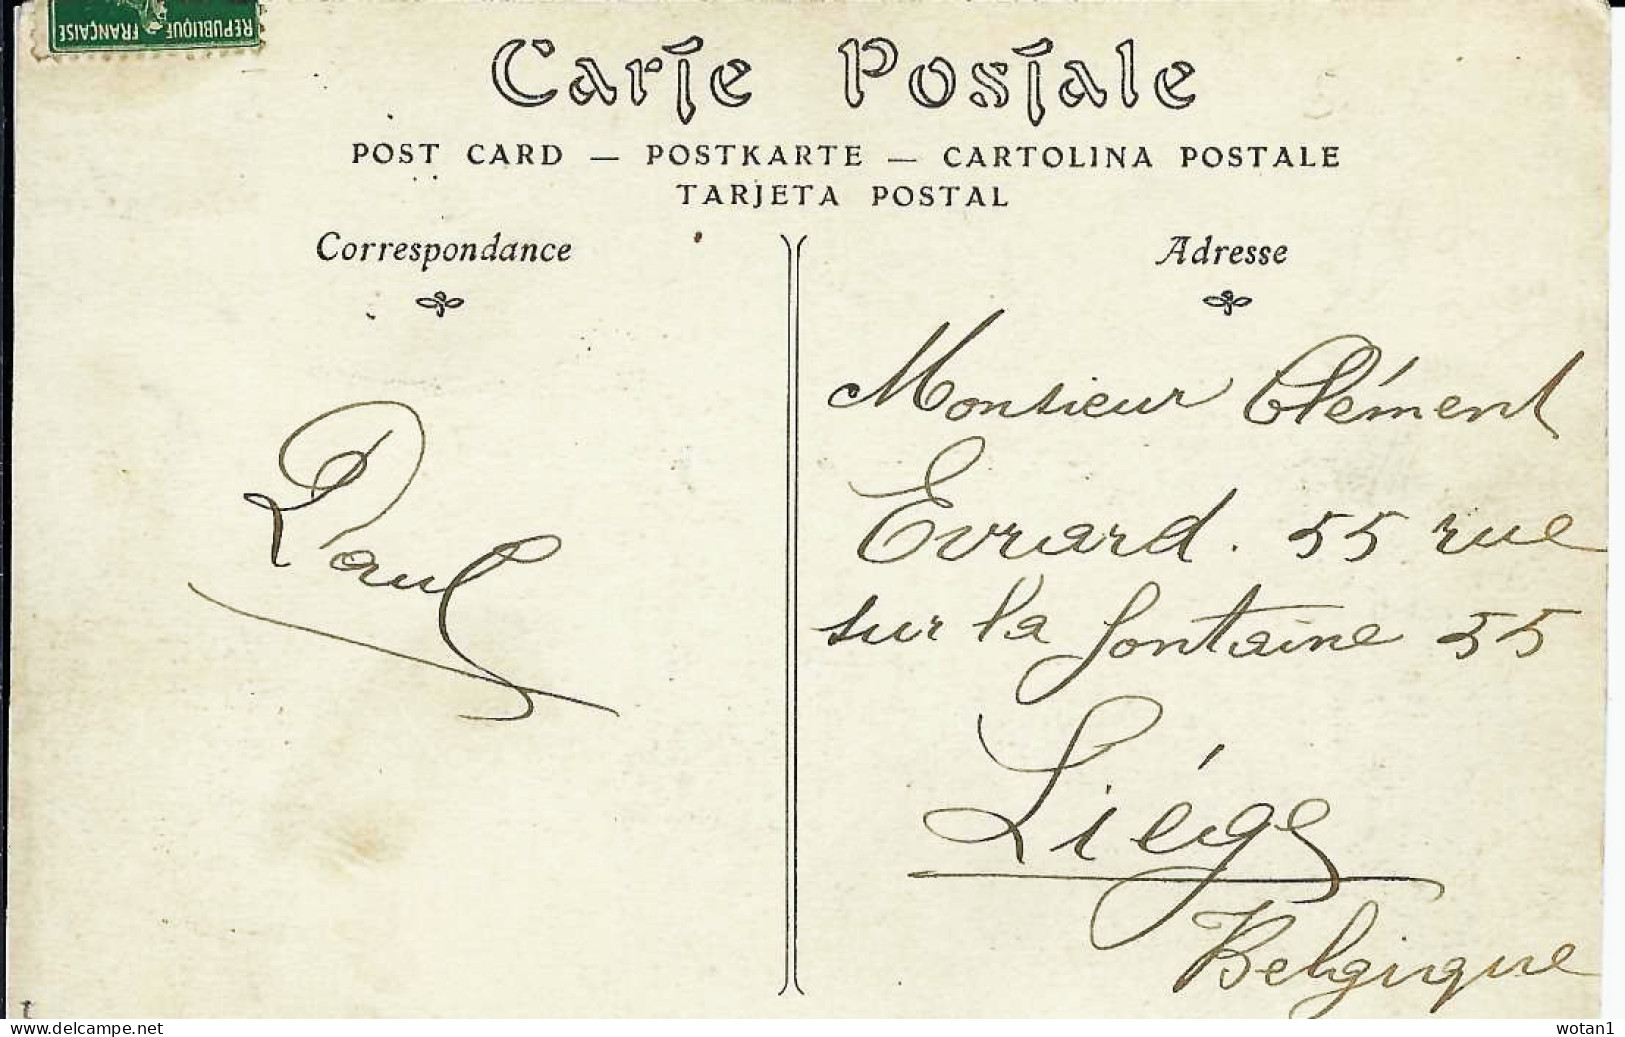 REPUBLIQUE FRANÇAISE
Carte Postale
POST CARD — POSTKARTE — CARTOLINA POSTALE
TARJETA POSTAL
Correspondance
Adresse
Paul
Monsieur Clément
Evrard. 55 rue
sur la fontaine 55
Liége
Belgique
www.delcampe.net
wotan1